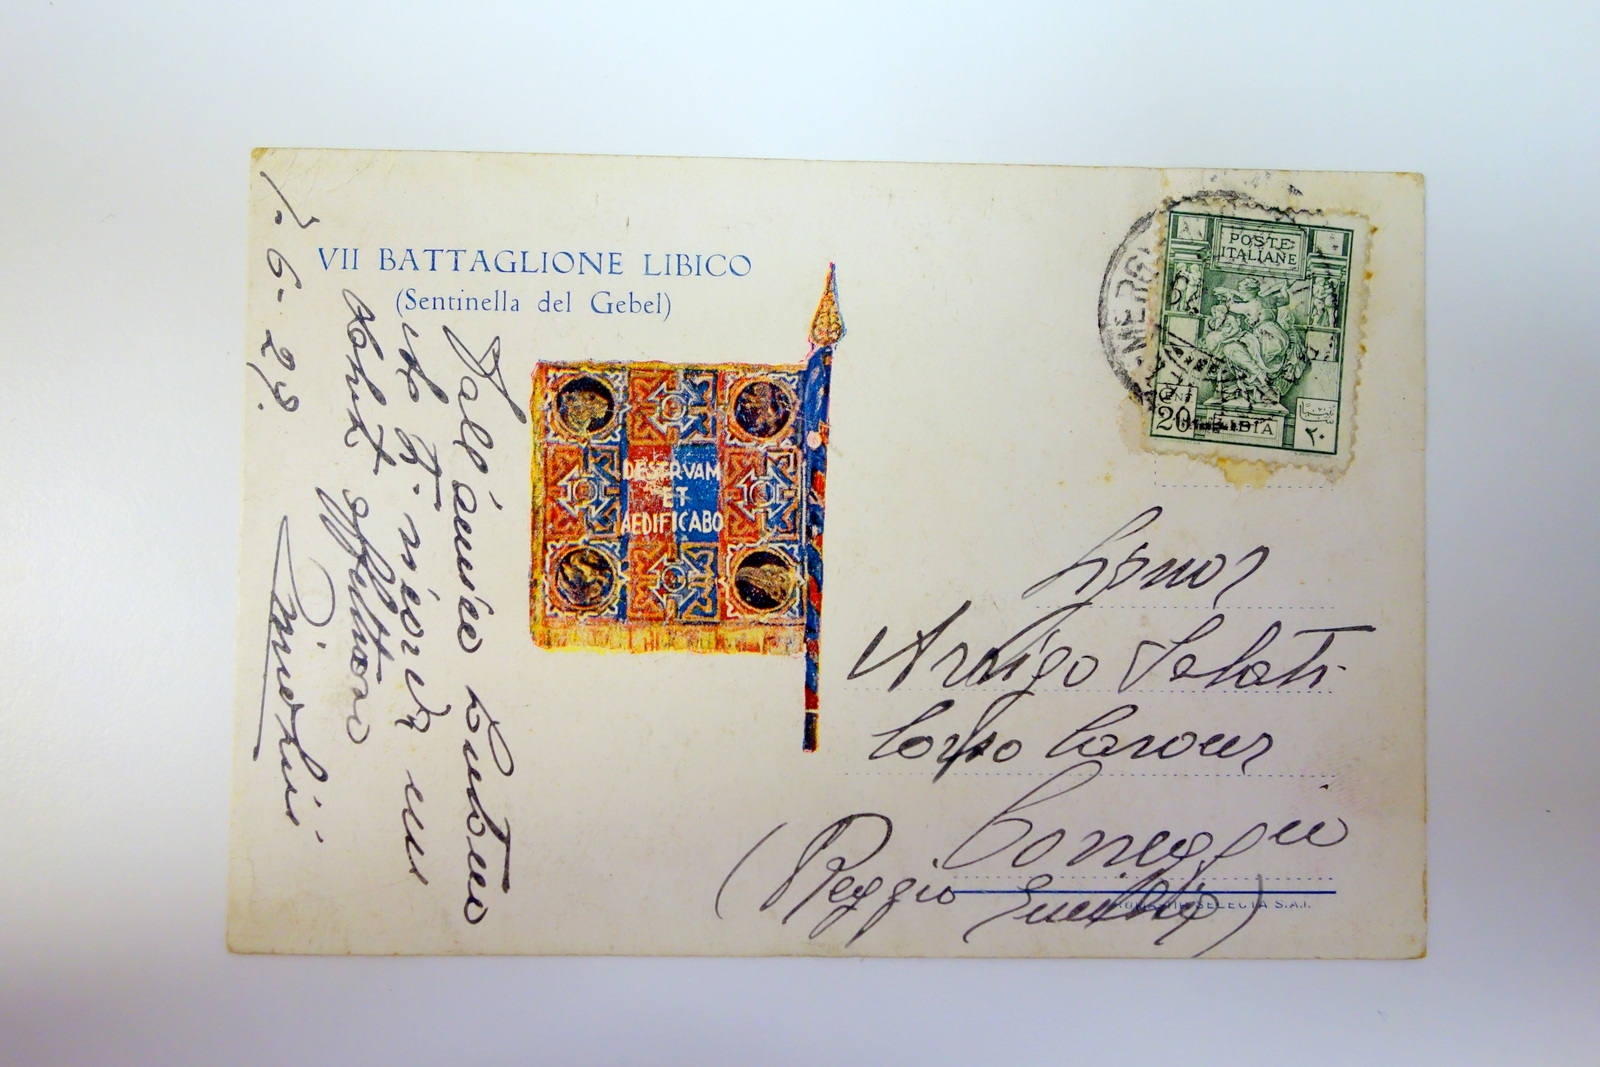 7. 6- 29.
VII BATTAGLIONE LIBICO
(Sentinella del Gebel)
DESTRVAM
ET
AEDIFICABO
Dall'amico lontano
che ti ricorda
Saluti affettuosi
POSTE
ITALIANE
CENT
20
LIBIA
٢٠
MERSA
Signor
Arrigo Salati
Corso Cavour
Correggio
(Reggio Emilia)
SELECTA S.A.I.